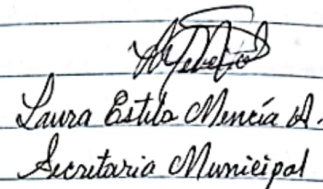 Laura Estela Mencía A.
Secretaria Municipal